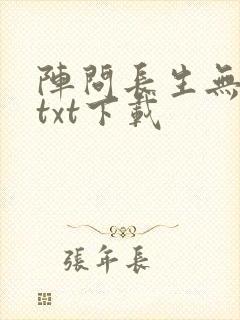 陣問長生無
txt下載
張年長